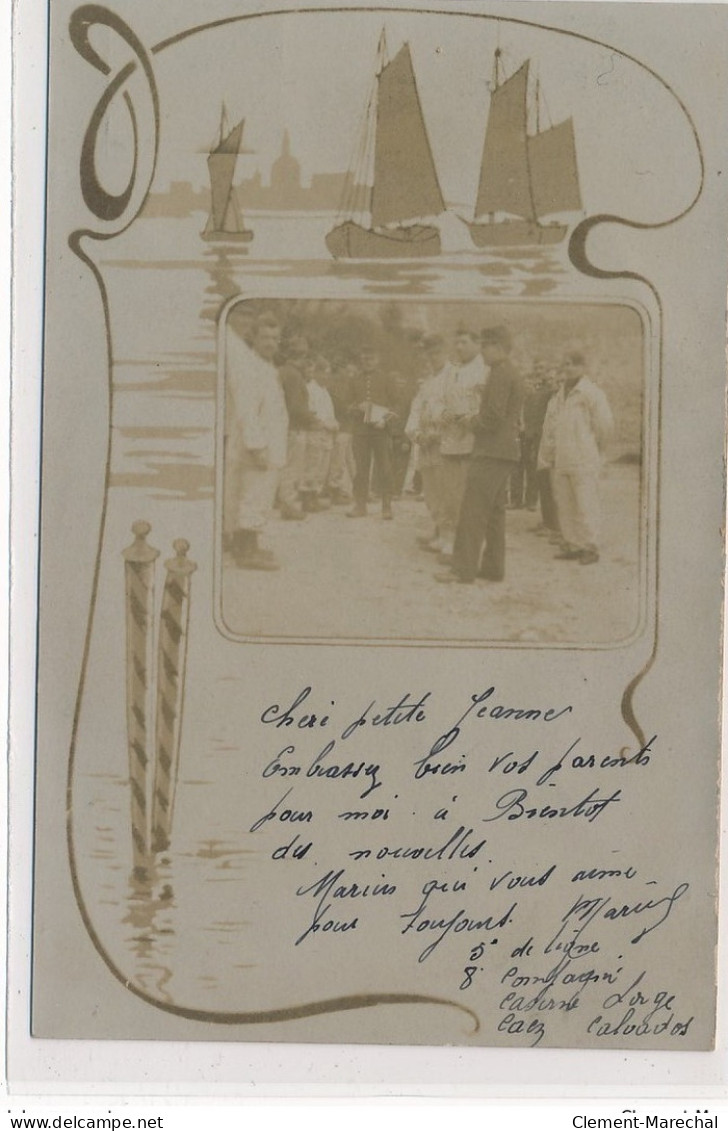 Cheri petite Jeanne
Embrassez bien vos parents
pour moi à Bientot
des nouvelles.
Marius qui vous aime
pour toujours. Marius
5e de ligne
8e Compagni
Caserne Lorge
Caen Calvados
Clement-Marechal